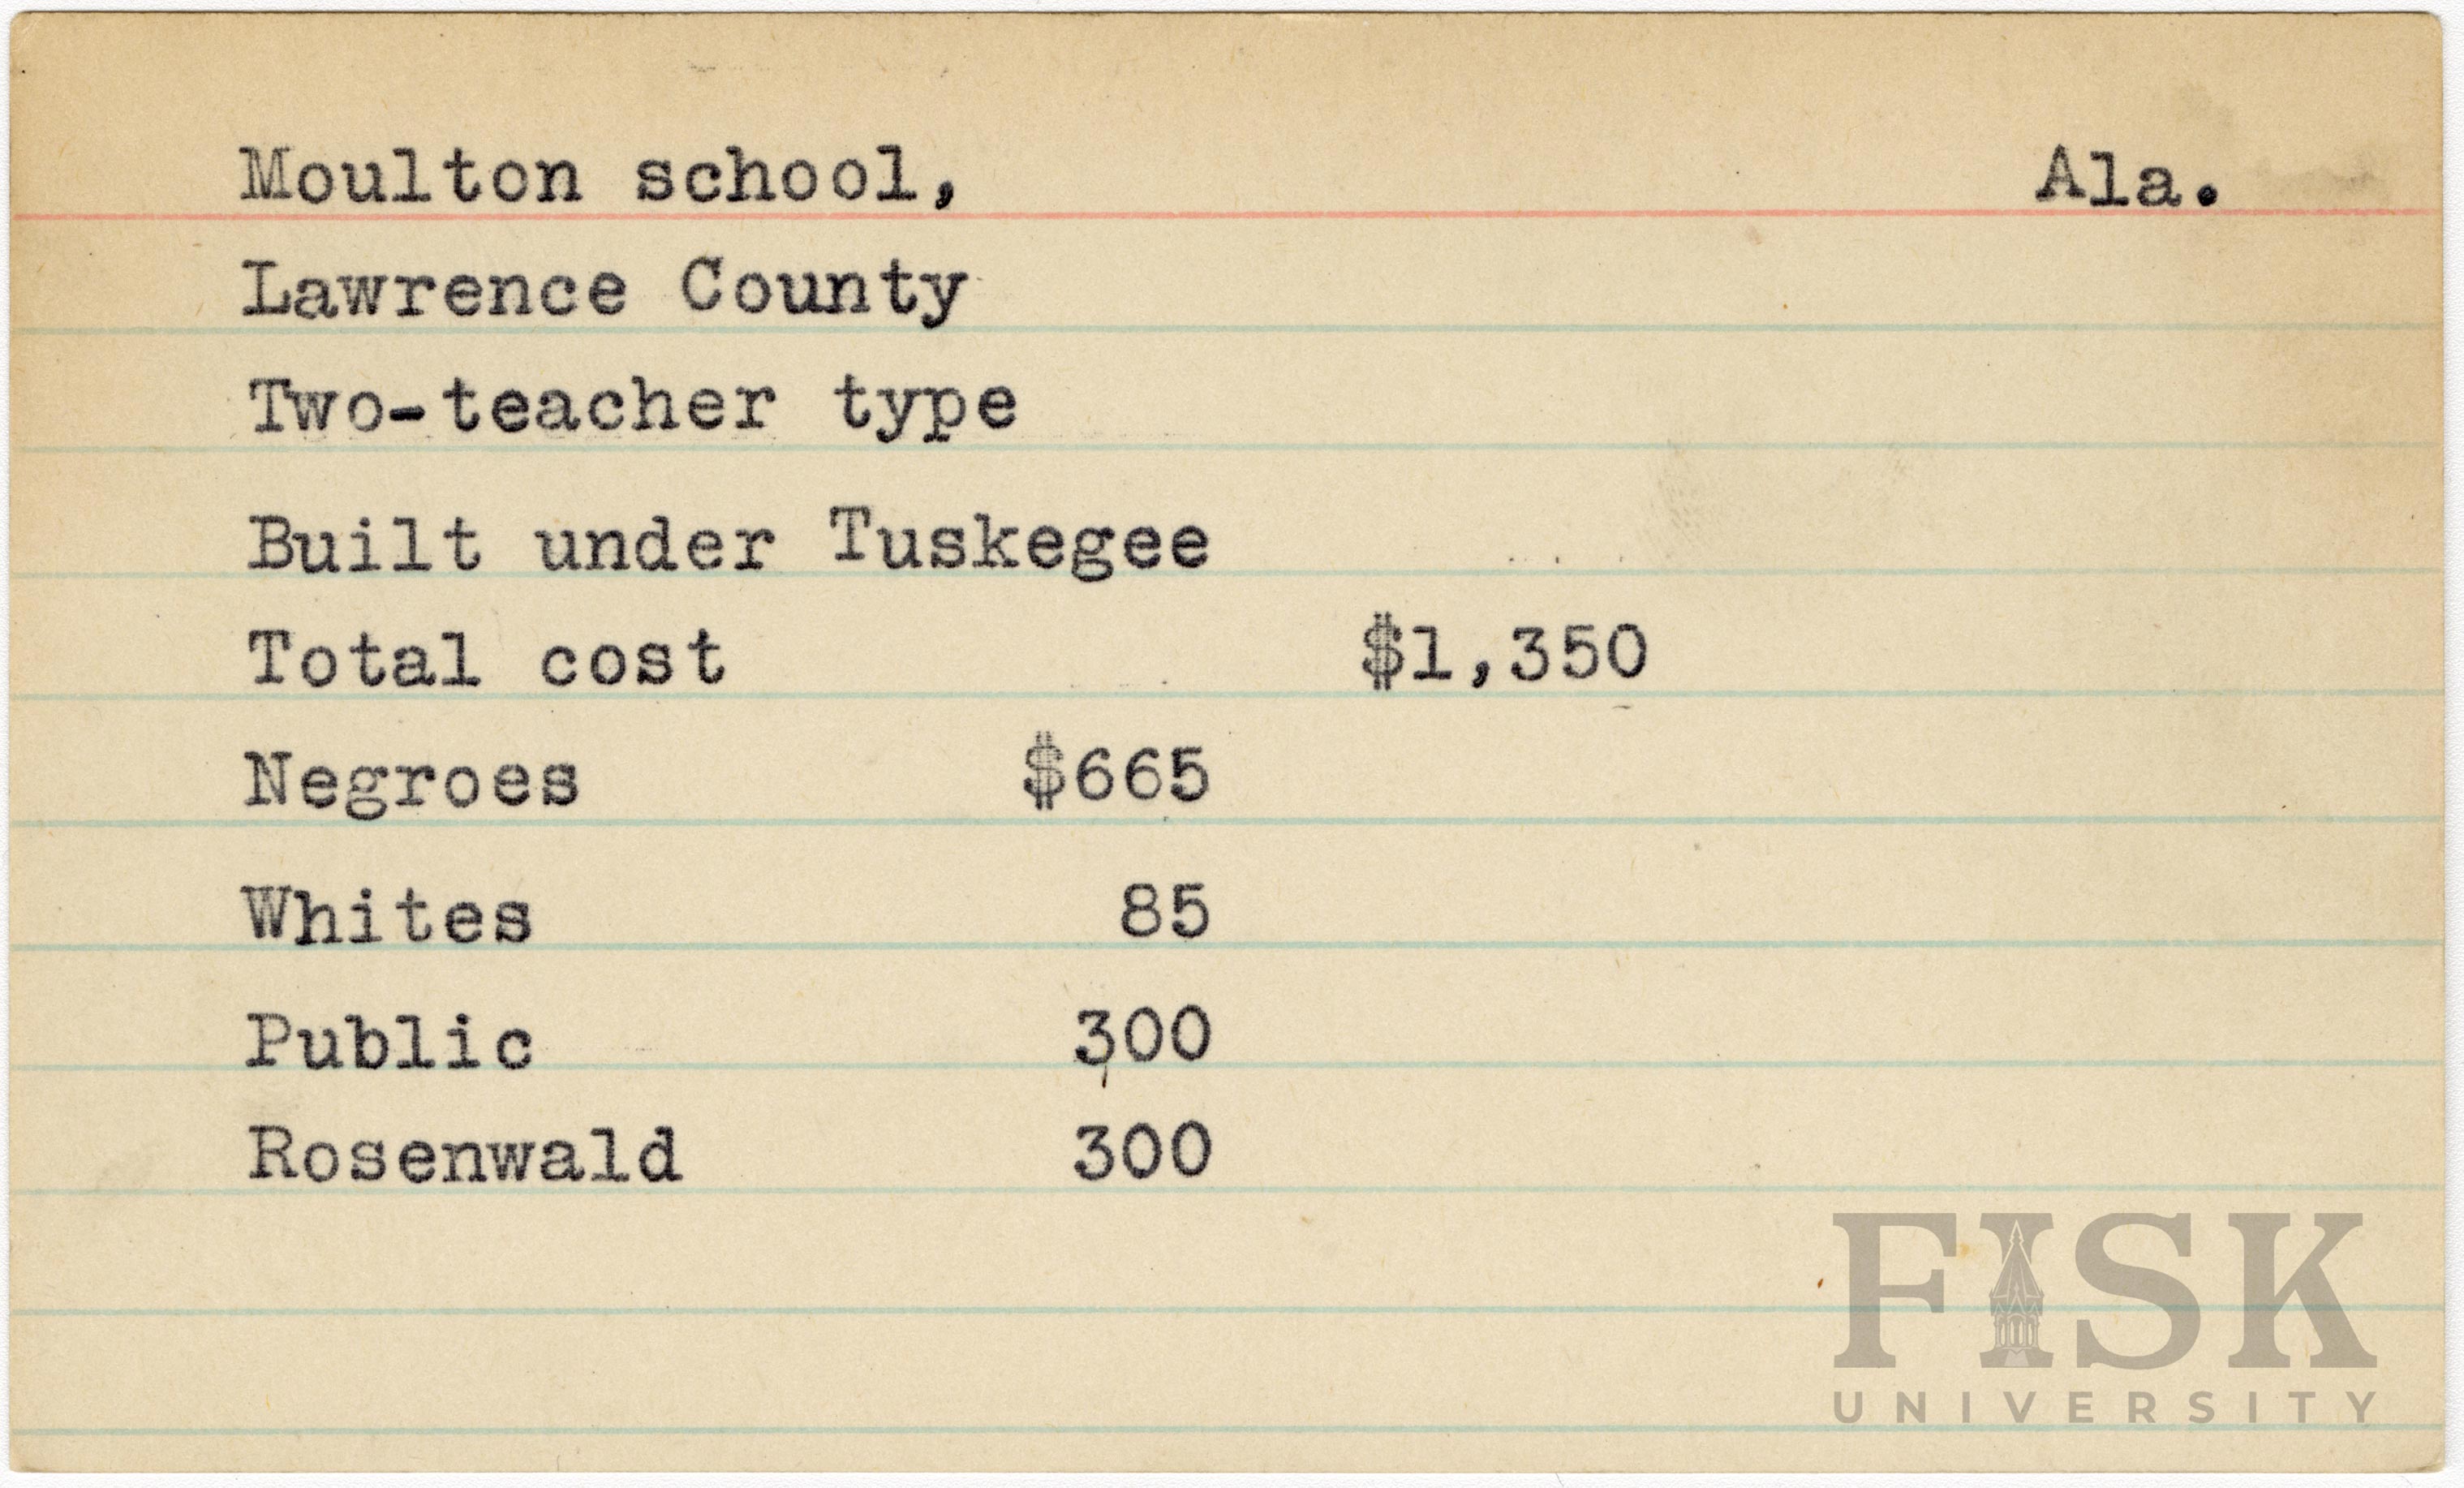 Moulton school, Ala.
Lawrence County
Two-teacher type
Built under Tuskegee
Total cost $1,350
Negroes $665
Whites 85
Public 300
Rosenwald 300
FISK
UNIVERSITY